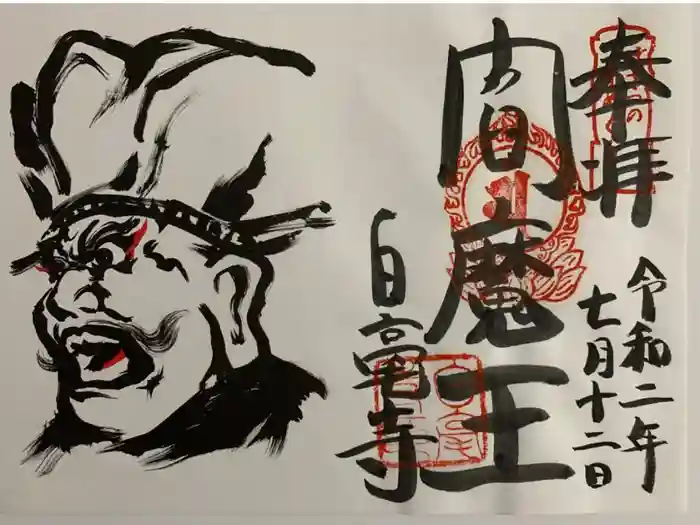 奉拝
令和二年
七月十二日
閻魔王
白毫寺